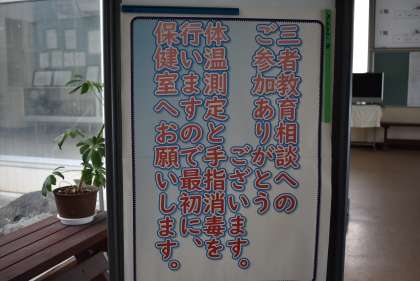 三者教育相談への
ご参加ありがとう
ございます。
体温測定と手指消毒を
行いますので最初に、
保健室へお願いします。